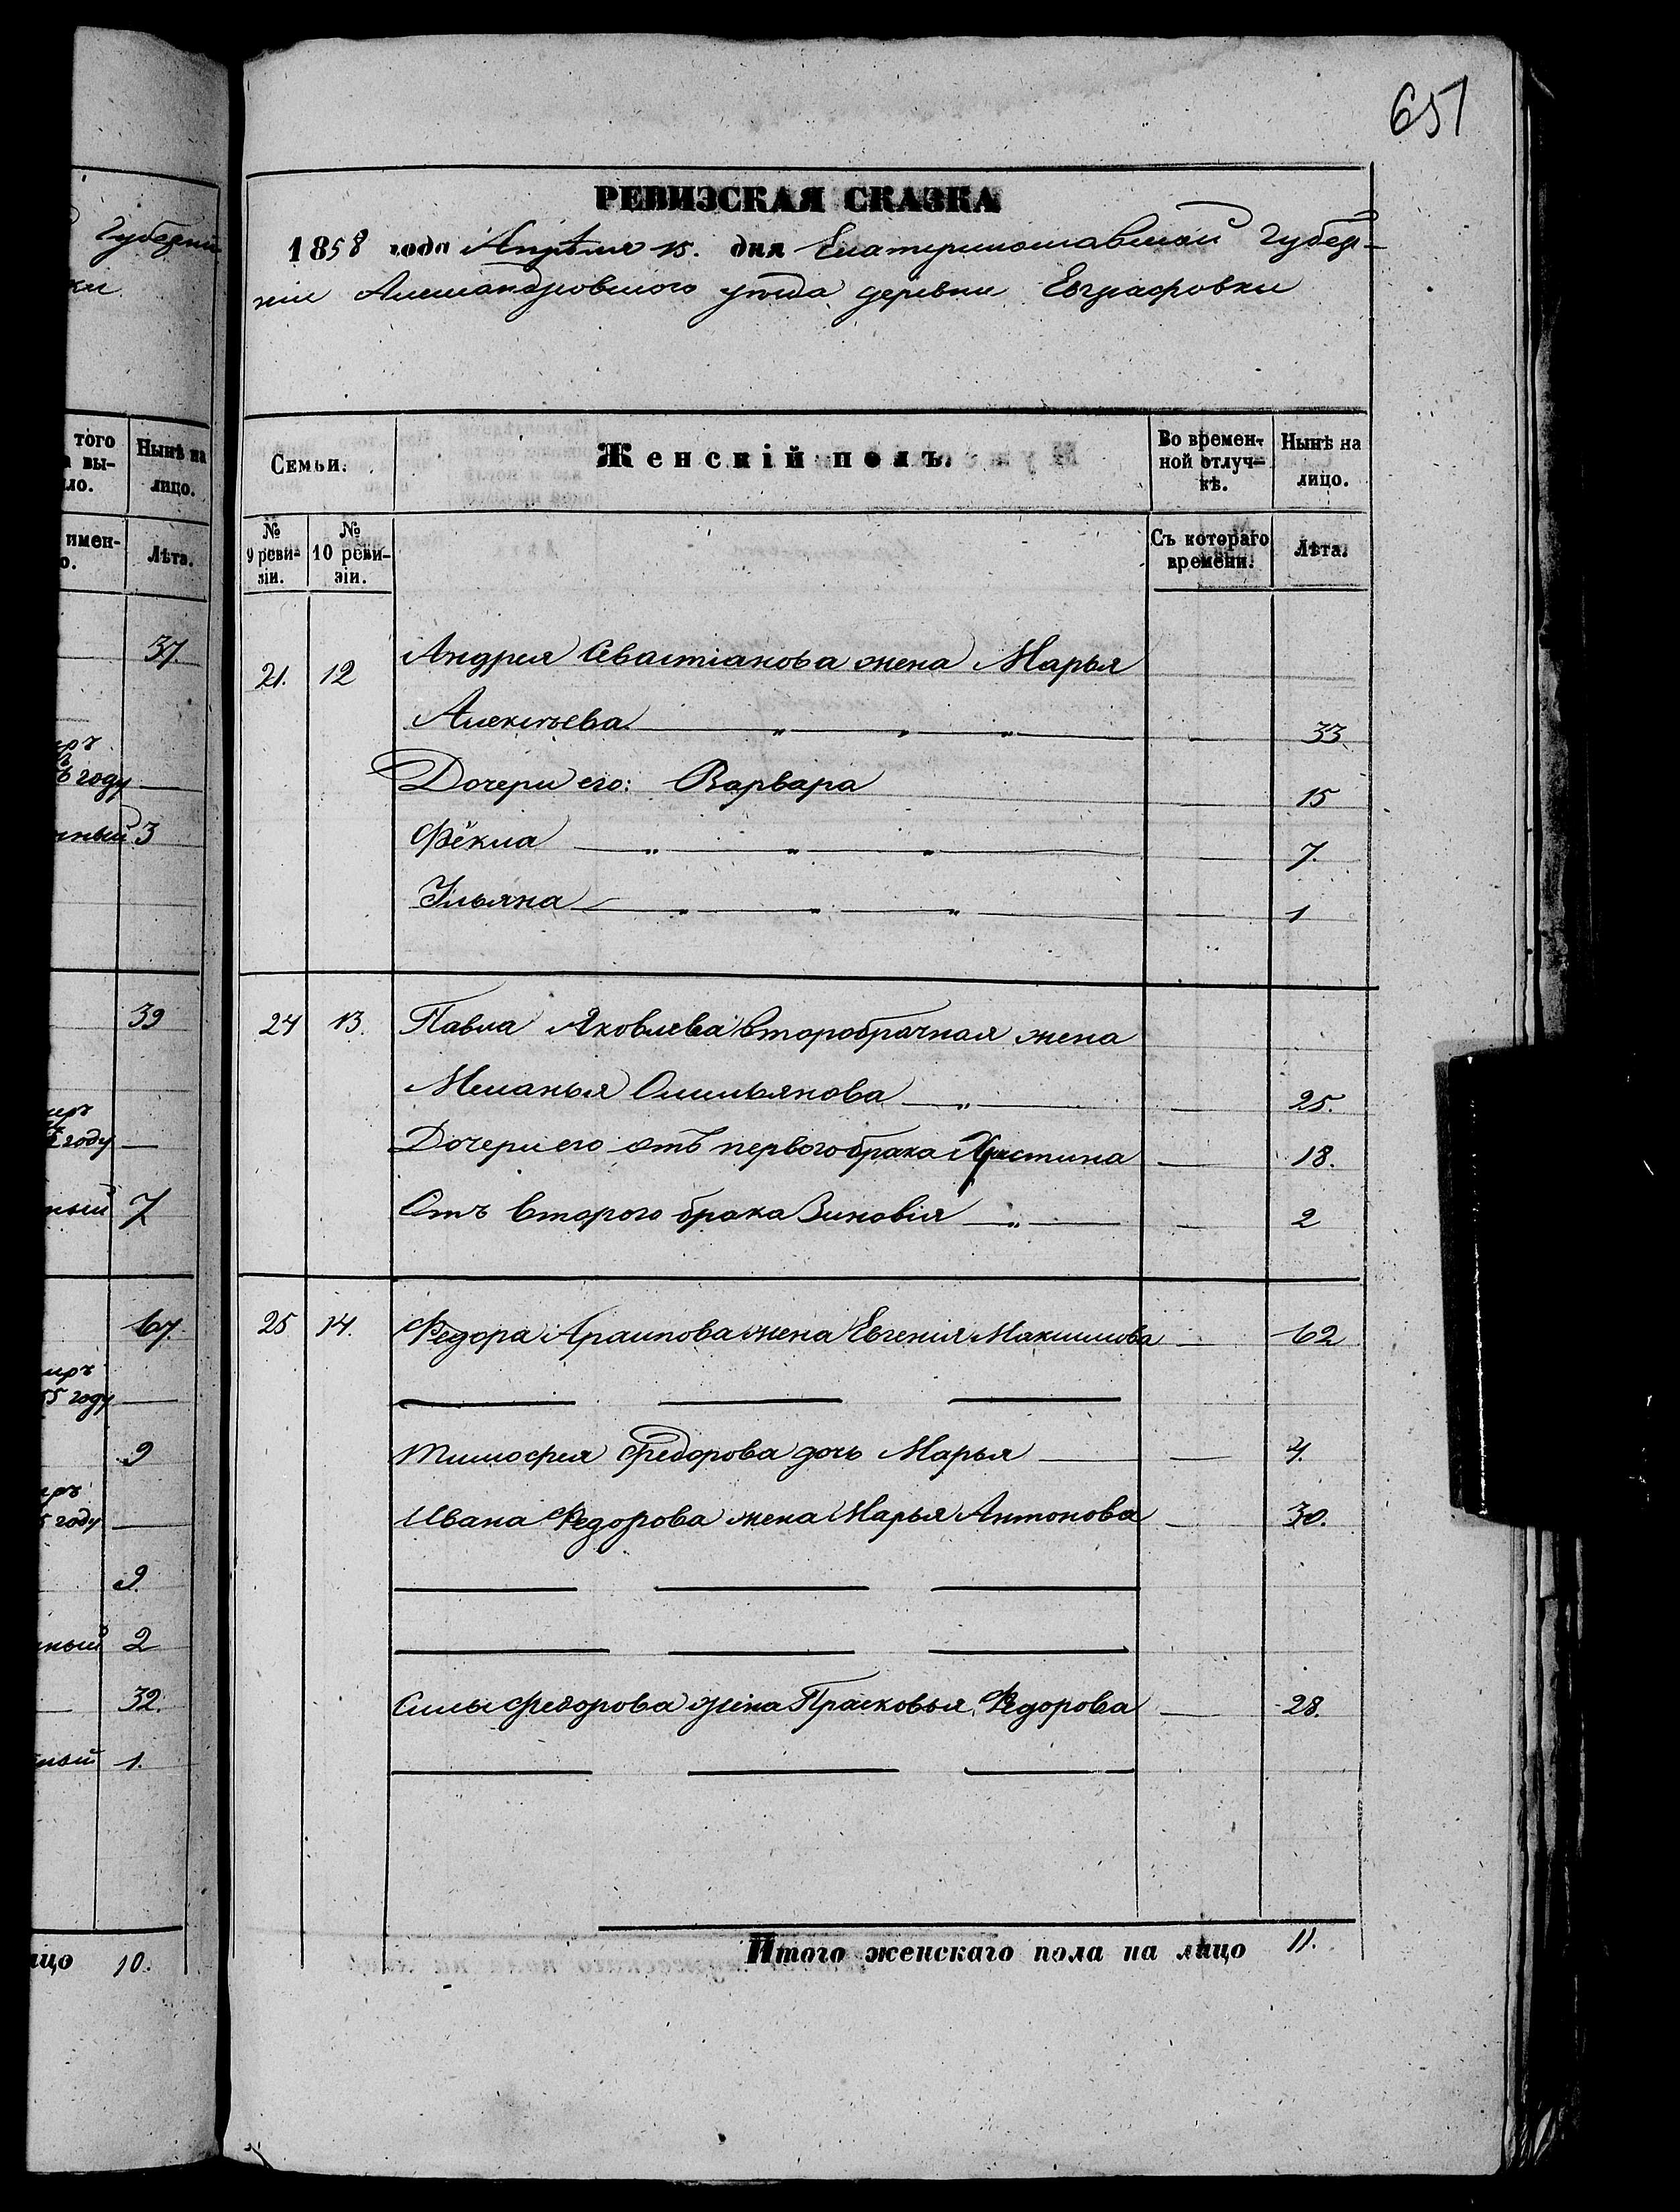 651
Губерніи
ки
того
а вы-
ло.
Нынѣ на
лицо.
имен-
о.
Лѣта.
37.
году
3
39
году
7
67.
55 году
9
году
9.
2
32.
1.
лицо 10.
РЕВИЗСКАЯ СКАЗКА
1858 года Апрѣля 15. дня Екатеринославской Губер-
ніи Александровского уѣзда деревни Евграфовки
Семьи.
Женскій полъ.
Во времен-
ной отлуч-
кѣ.
Нынѣ на
лицо.
№
9 реви-
зіи.
№
10 реви-
зіи.
Съ котораго
времени.
Лѣта.
21. 12 Андрея Севастіанова жена Марья
Алексѣева " " " — 33
Дочери его: Варвара — 15
Фёкла " " " — 7.
Ульяна " " " — 1
24 13. Павла Яковлева второбрачная жена
Меланья Омельянова " — 25.
Дочери его отъ первого брака Христина — 18.
Отъ второго брака Зиновія " — 2
25 14. Федора Архипова жена Евгенія Максимова — 62
Тимофея Федорова дочь Марья — 4.
Ивана Федорова жена Марья Антонова — 30.
Силы Федорова жена Прасковья Федорова — 28.
Итого женскаго пола на лицо 11.